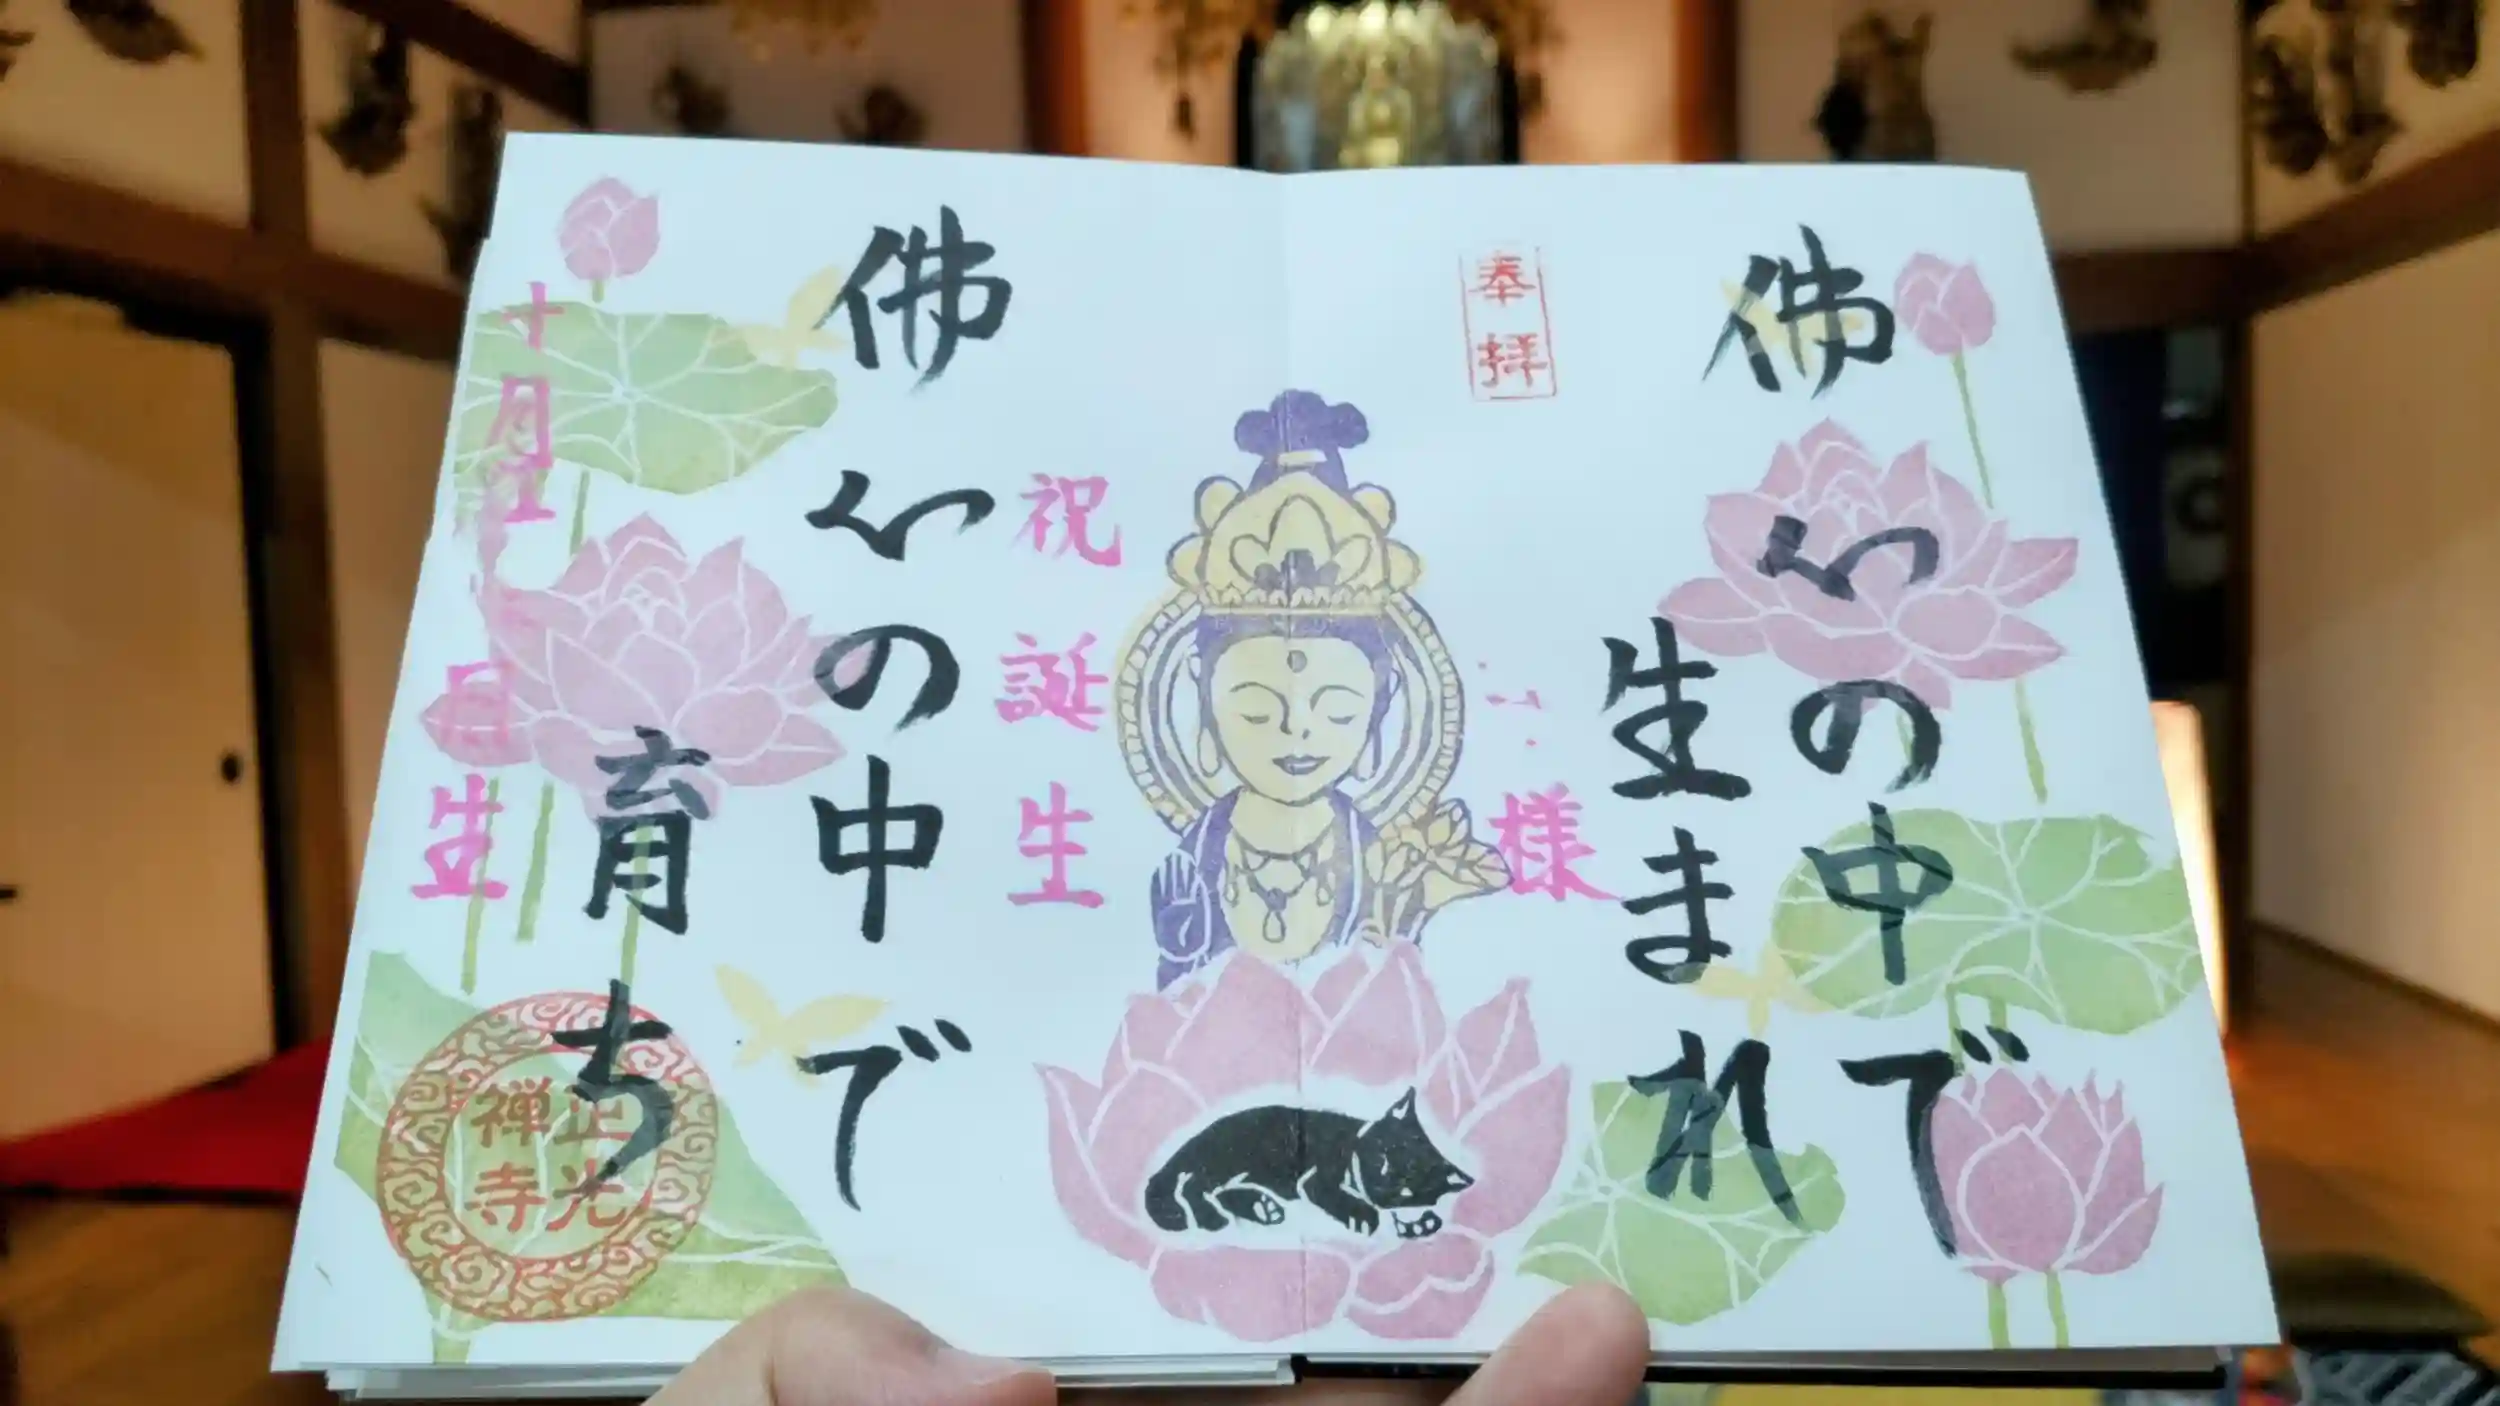 奉拝
佛心の中で
生まれ
様
祝誕生
佛心の中で
育ち
十月
日生
正光
禅寺